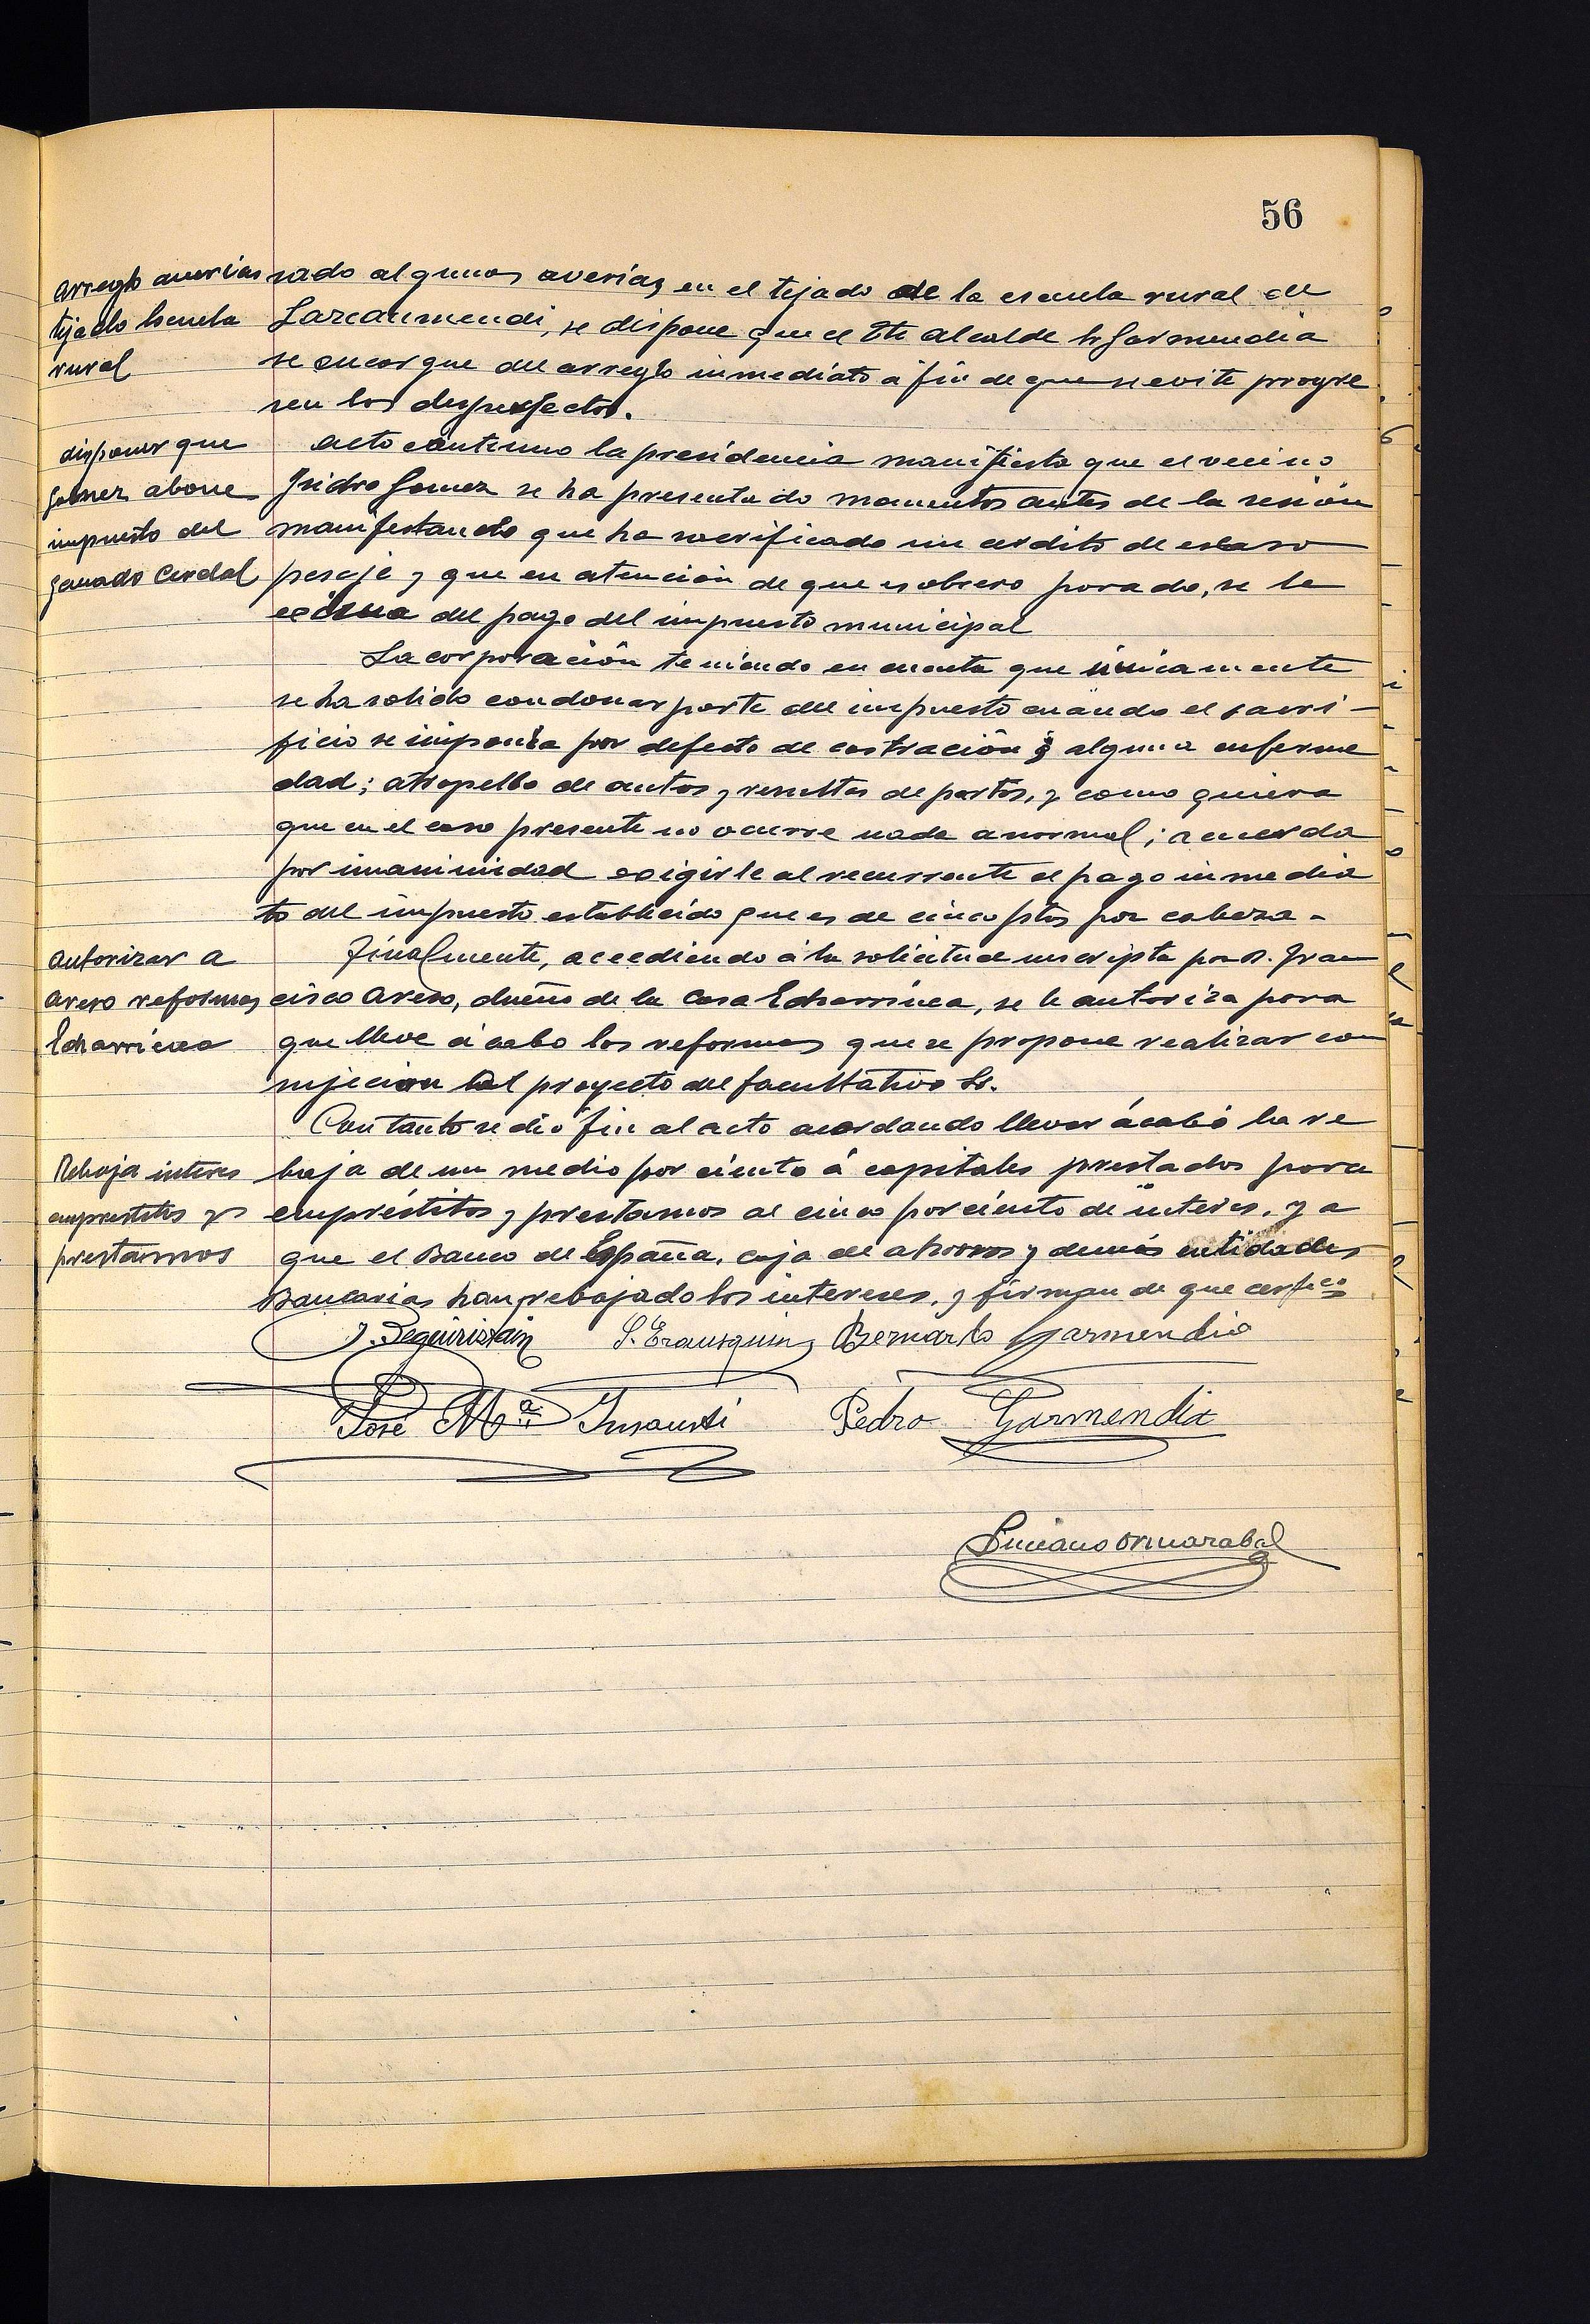 56
arreglo averias
tejado Escuela
rural
sado algunas averías en el tejado de la escuela rural de
Larcaumendi, se dispone que el Tte alcalde Sr Garmendia
se encargue del arreglo inmediato a fin de que se evite progre
sen los desperfectos.
disponer que
Gomez abone
impuesto del
ganado cerdal
acto continuo la presidencia manifiesta que el vecino
Isidro Gomez se ha presentado momentos antes de la sesión
manifestando que ha sacrificado un cerdito de escaso
pesaje y que en atención de que es obrero parado, se le
exima del pago del impuesto municipal
La corporación teniendo en cuenta que únicamente
se ha solido condonar parte del impuesto cuando el sacri-
ficio se imponía por defecto de castración ó alguna enferme
dad; atropello de autos y resultas de partos, y como quiera
que en el caso presente no ocurre nada anormal; acuerda
por unanimidad exigirle al recurrente el pago inmedia
to del impuesto establecido que es de cinco ptas por cabeza.
autorizar a
Arero reformas
Echarrinea
Finalmente, accediendo á la solicitud suscripta por D. Fran
cisco Arero, dueño de la Casa Echarrinea, se le autoriza para
que lleve á cabo las reformas que se propone realizar con
sujecion al proyecto del facultativo Sr.
Con tanto se dió fin al acto acordando llevar á cabo la re
Rebaja interes
emprestitos y
prestamos
baja de un medio por ciento á capitales prestados para
empréstitos y prestamos al cinco por ciento de interes, ya
que el Banco de España, caja de ahorros y demás entidades
Bancarias han rebajado los intereses, y firman de que certifico
J. Seguiristain S. Erausquin Bernardo Garmendia
José Mª Insausti Pedro Garmendia
Luciano Ormazabal